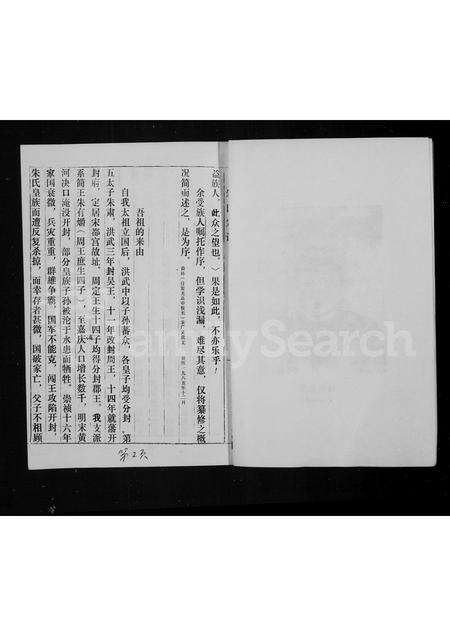 益族人，此众之望也。）果是如此，不亦乐乎！
余受族人嘱托作序，但学识浅漏，难尽其意，仅将纂修之概
况简而述之，是为序。
吾祖的来由
自我太祖立国后，洪武中以子孙蕃众，各皇子均受分封，第
五太子朱肃，洪武三年封吴王，十一年改封周王，十四年就藩开
封府，定居宋都宫故址，周定王生十四子均得分封郡王。我支派
系简王朱有爝（周王庶生四子），至嘉庆人口增长数千，明末黄
河决口淹没开封，部分皇族子孙被沦于水患而牺牲，崇祯十六年
家国衰微，兵灾重重，群雄争霸，国车不能克，闯王攻陷开封，
朱氏皇族而遭反复杀掠，而幸存者甚微，国破家亡，父子不相顾
第2页
FamilySearch